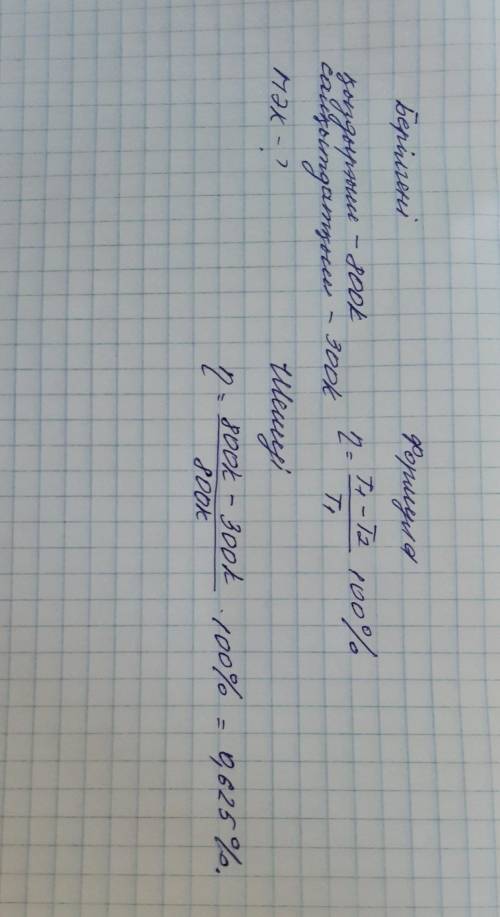 Берілгені
қыздырғыш - 800k
салқындатқыш - 300k
ПӘК - ?
Формула
η = T1 - T2 / T1 100%
Шешуі
η = 800k - 300k / 800k · 100% = 0,625%.